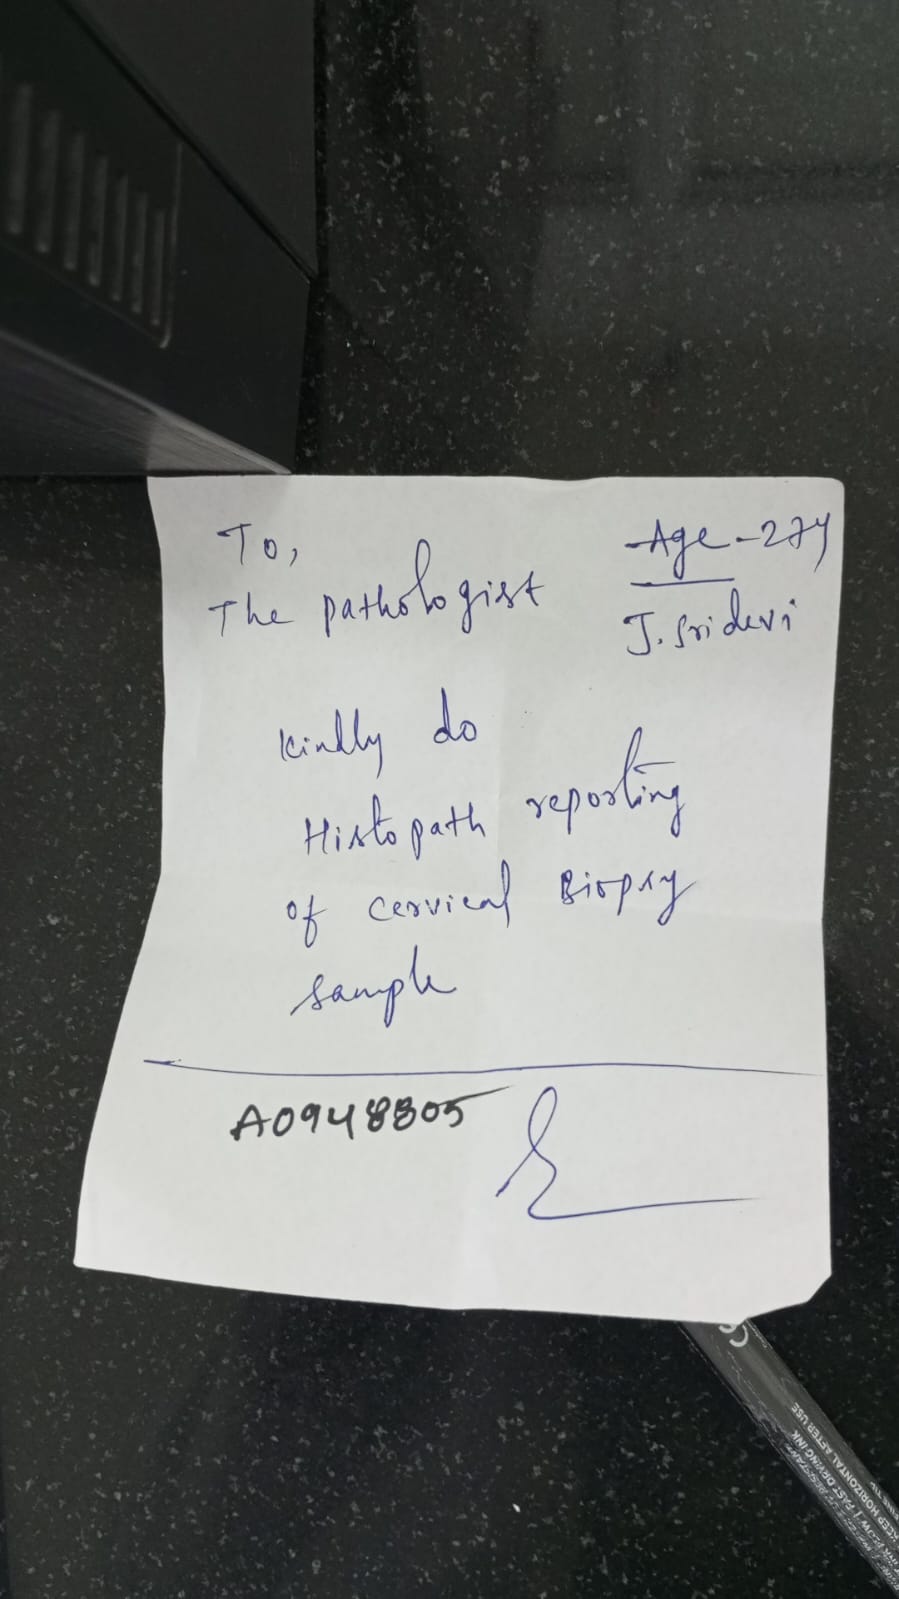 To,
The pathologist
Age - 27y
J. Sridevi
kindly do
Histopath reporting
of cervical Biopsy
sample
A0948805
KEEP HORIZONTAL AFTER USE
FAST DRYING INK